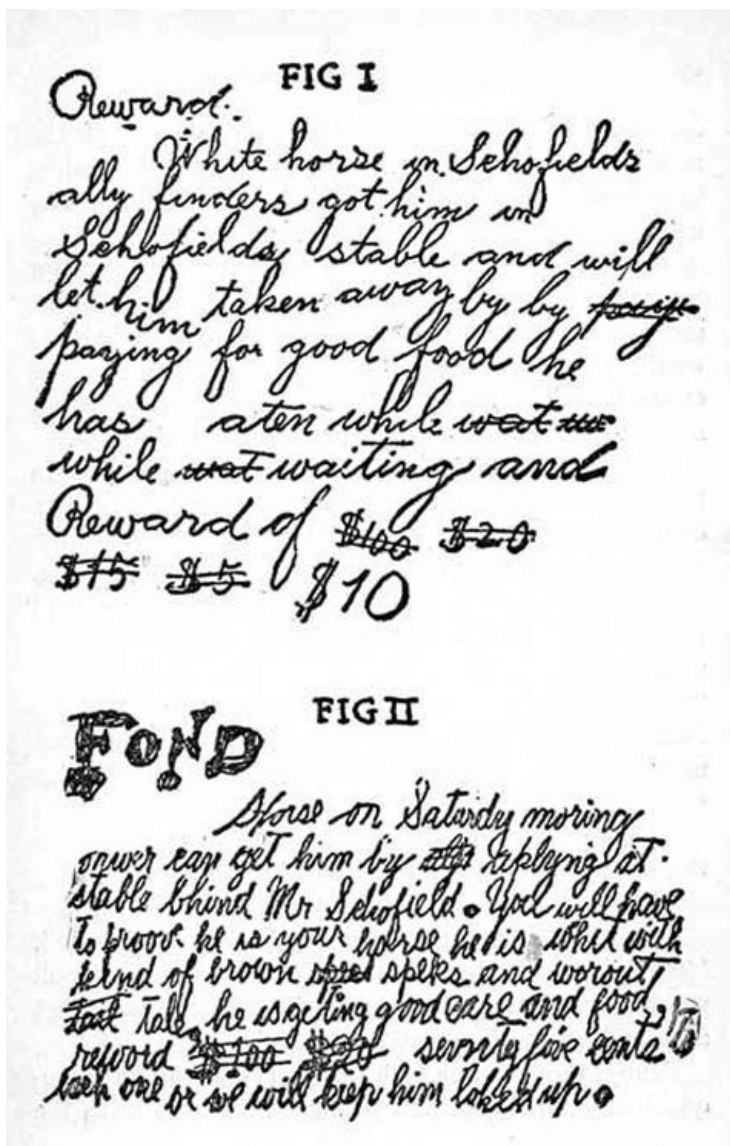 FIG I
Reward.
White horse in Schofields
ally finders got him in
Schofields stable and will
let him taken away by by
paying for good food he
has aten while wat
while wat waiting and
Reward of $100 $20
$15 $5 $10
FIG II
FOND
Horse on Saturdy moring
onwer can get him by aplyng at
stable bhind Mr Schofield. You will have
to proov he is your horse he is whit with
kind of brown speks and worout
tail tale, he is geting good care and food,
reword $100 $20 sevnty five cents
each one or we will keep him loked up.